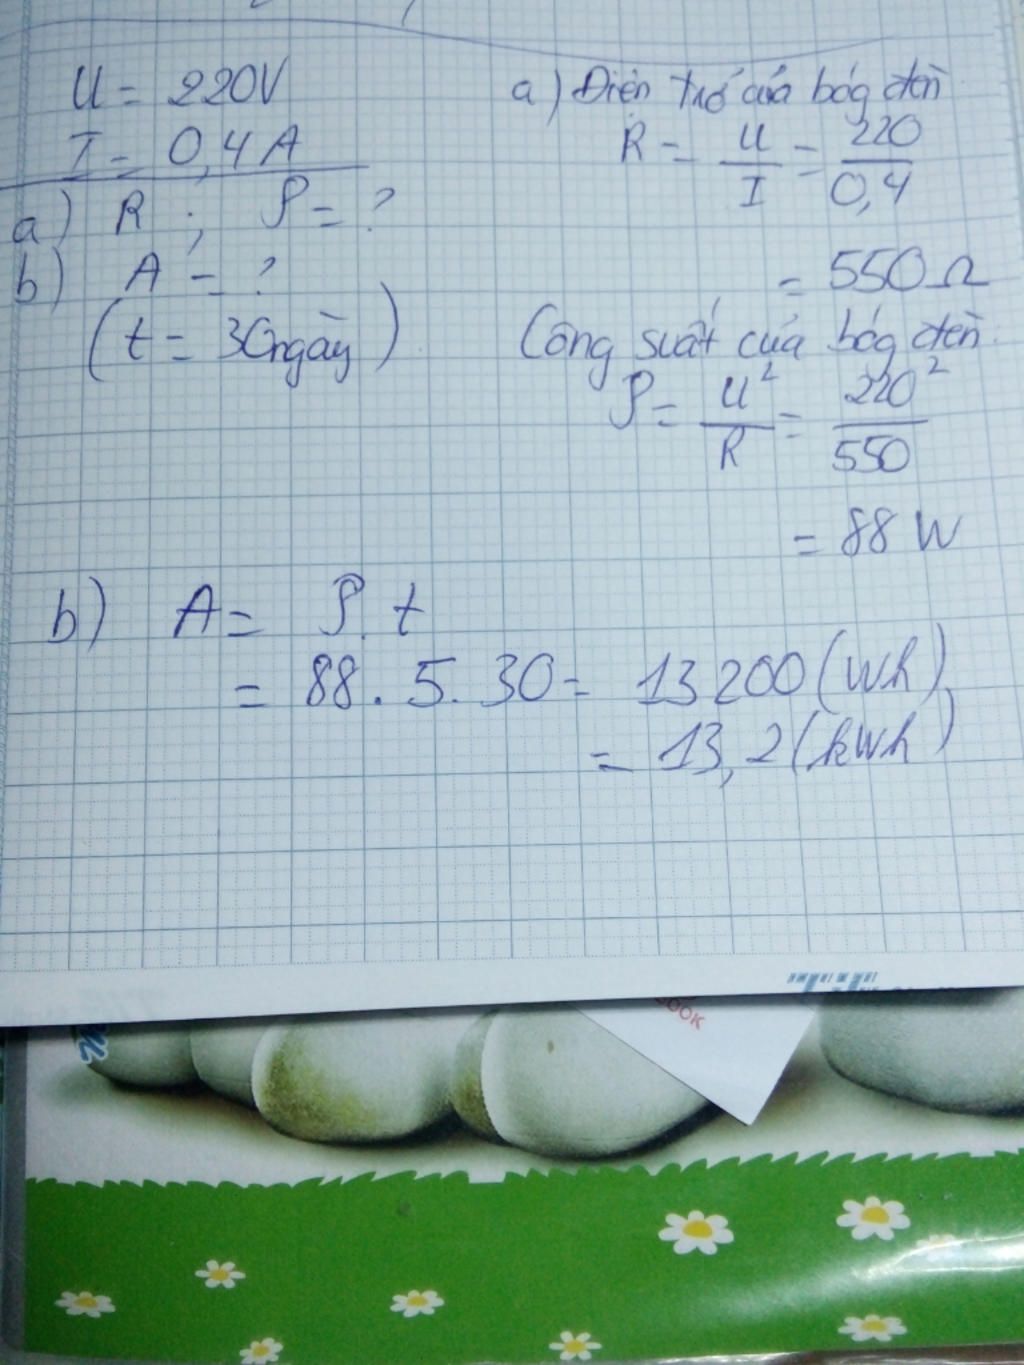 U = 220V
I = 0,4A
a) R ; P = ?
b) A = ?
(t = 30ngày)
a) Điện trở của bóg đèn
R = U/I = 220/0,4
= 550Ω
Công suất của bóg đèn.
P = U²/R = 220²/550
= 88 W
b) A = P. t
= 88. 5. 30 = 13200 (Wh)
= 13,2 (kWh)
OOK